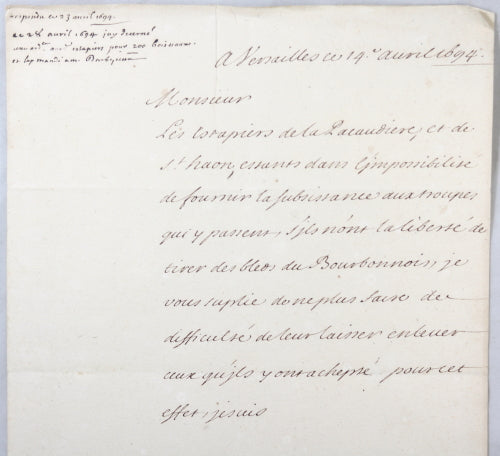 respondu ce 23 avril 1694.
ce 28 avril 1694 jay donné
estapiers pour 200 boisseaux
A Versailles ce 14.e avril 1694.
Monsieur
Les Estapiers de la Pacaudiere, et de
St. haon, estants dans l'jmpossibilité
de fournir la subsistance aux troupes
qui y passent, s'jls n'ont la liberté de
tirer des bleds du Bourbonnois, je
vous suplie de ne plus faire de
difficulté de leur laisser enlever
ceux qu'jls y ont achepté pour cet
effet, je suis